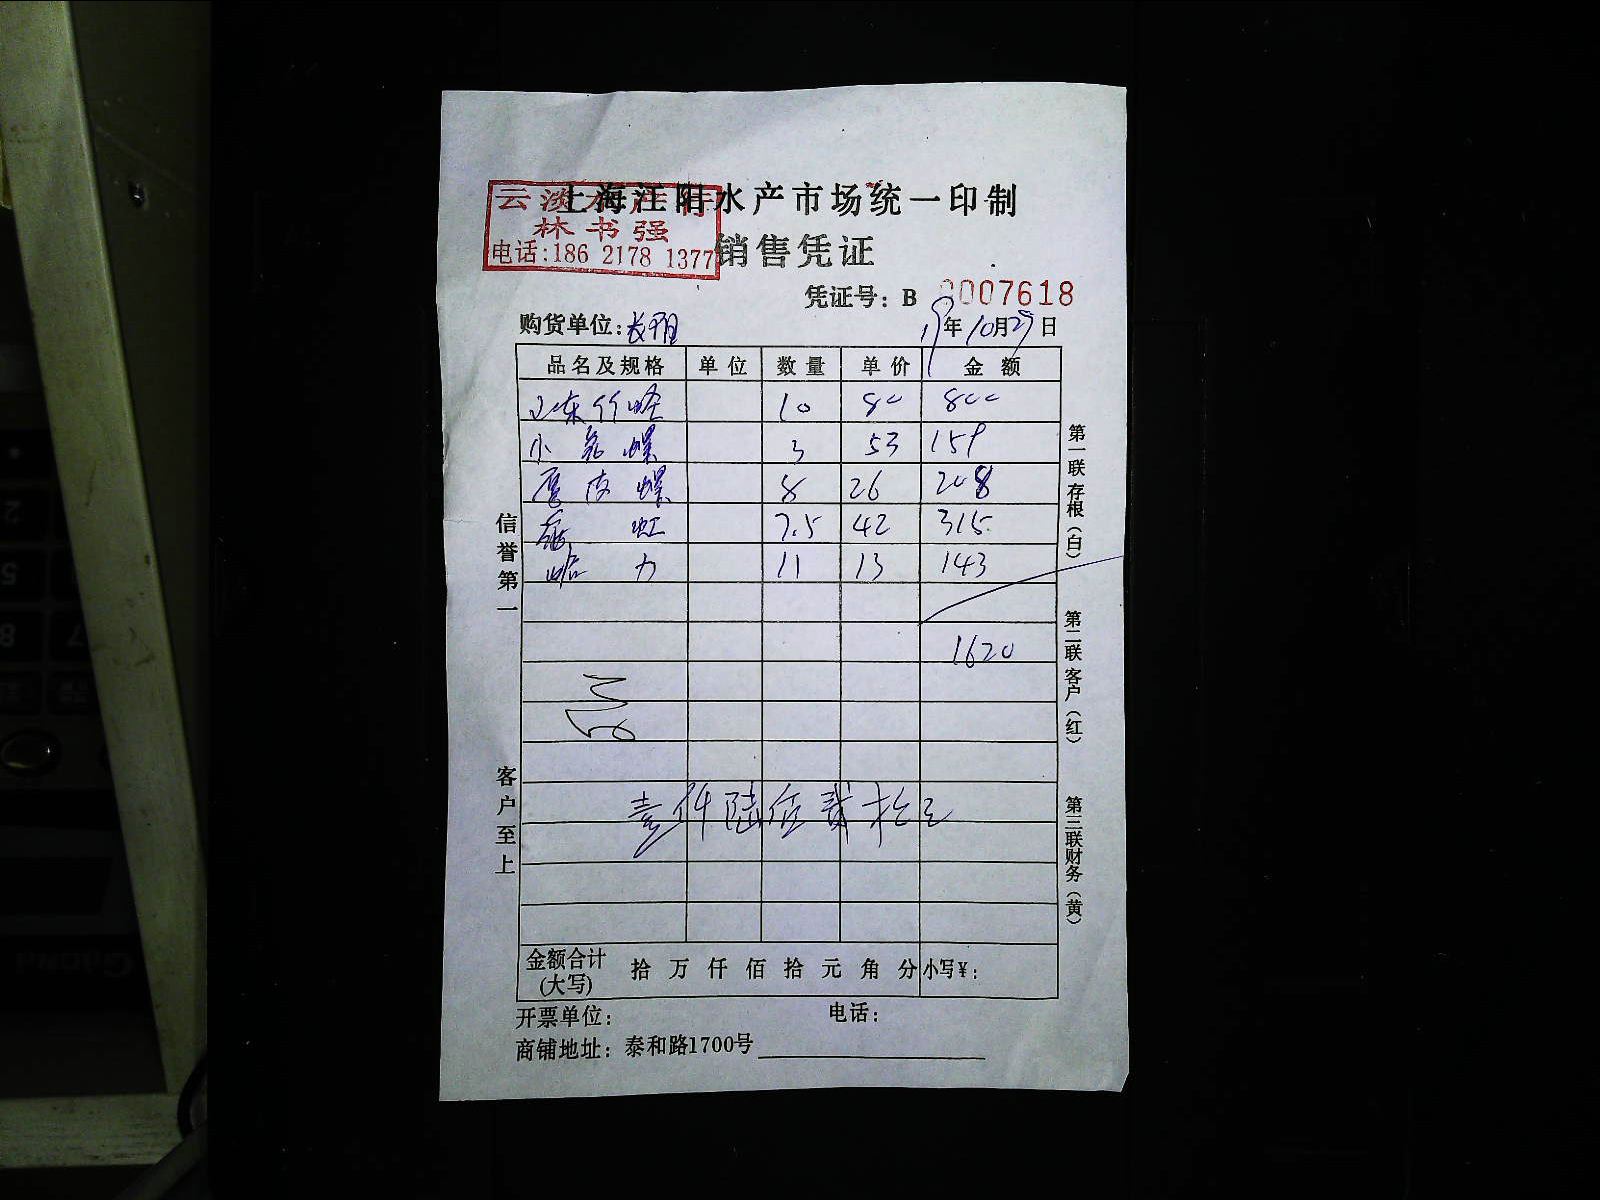 上海江阳水产市场统一印制
云淡水产行
林书强
电话:186 2178 1377
销售凭证
凭证号: B 0007618
购货单位:
19年10月29日
品名及规格 单位 数量 单价 金额
山东竹蛏 10 80 800
小 螺 3 53 159
皮 螺 8 26 208
虹 7.5 42 315
蛤 力 11 13 143
1620
壹仟陆佰贰拾元
金额合计(大写) 拾 万 仟 佰 拾 元 角 分 小写¥:
开票单位: 电话:
商铺地址: 泰和路1700号
信誉第一
客户至上
第一联 存根(白)
第二联 客户(红)
第三联 财务(黄)